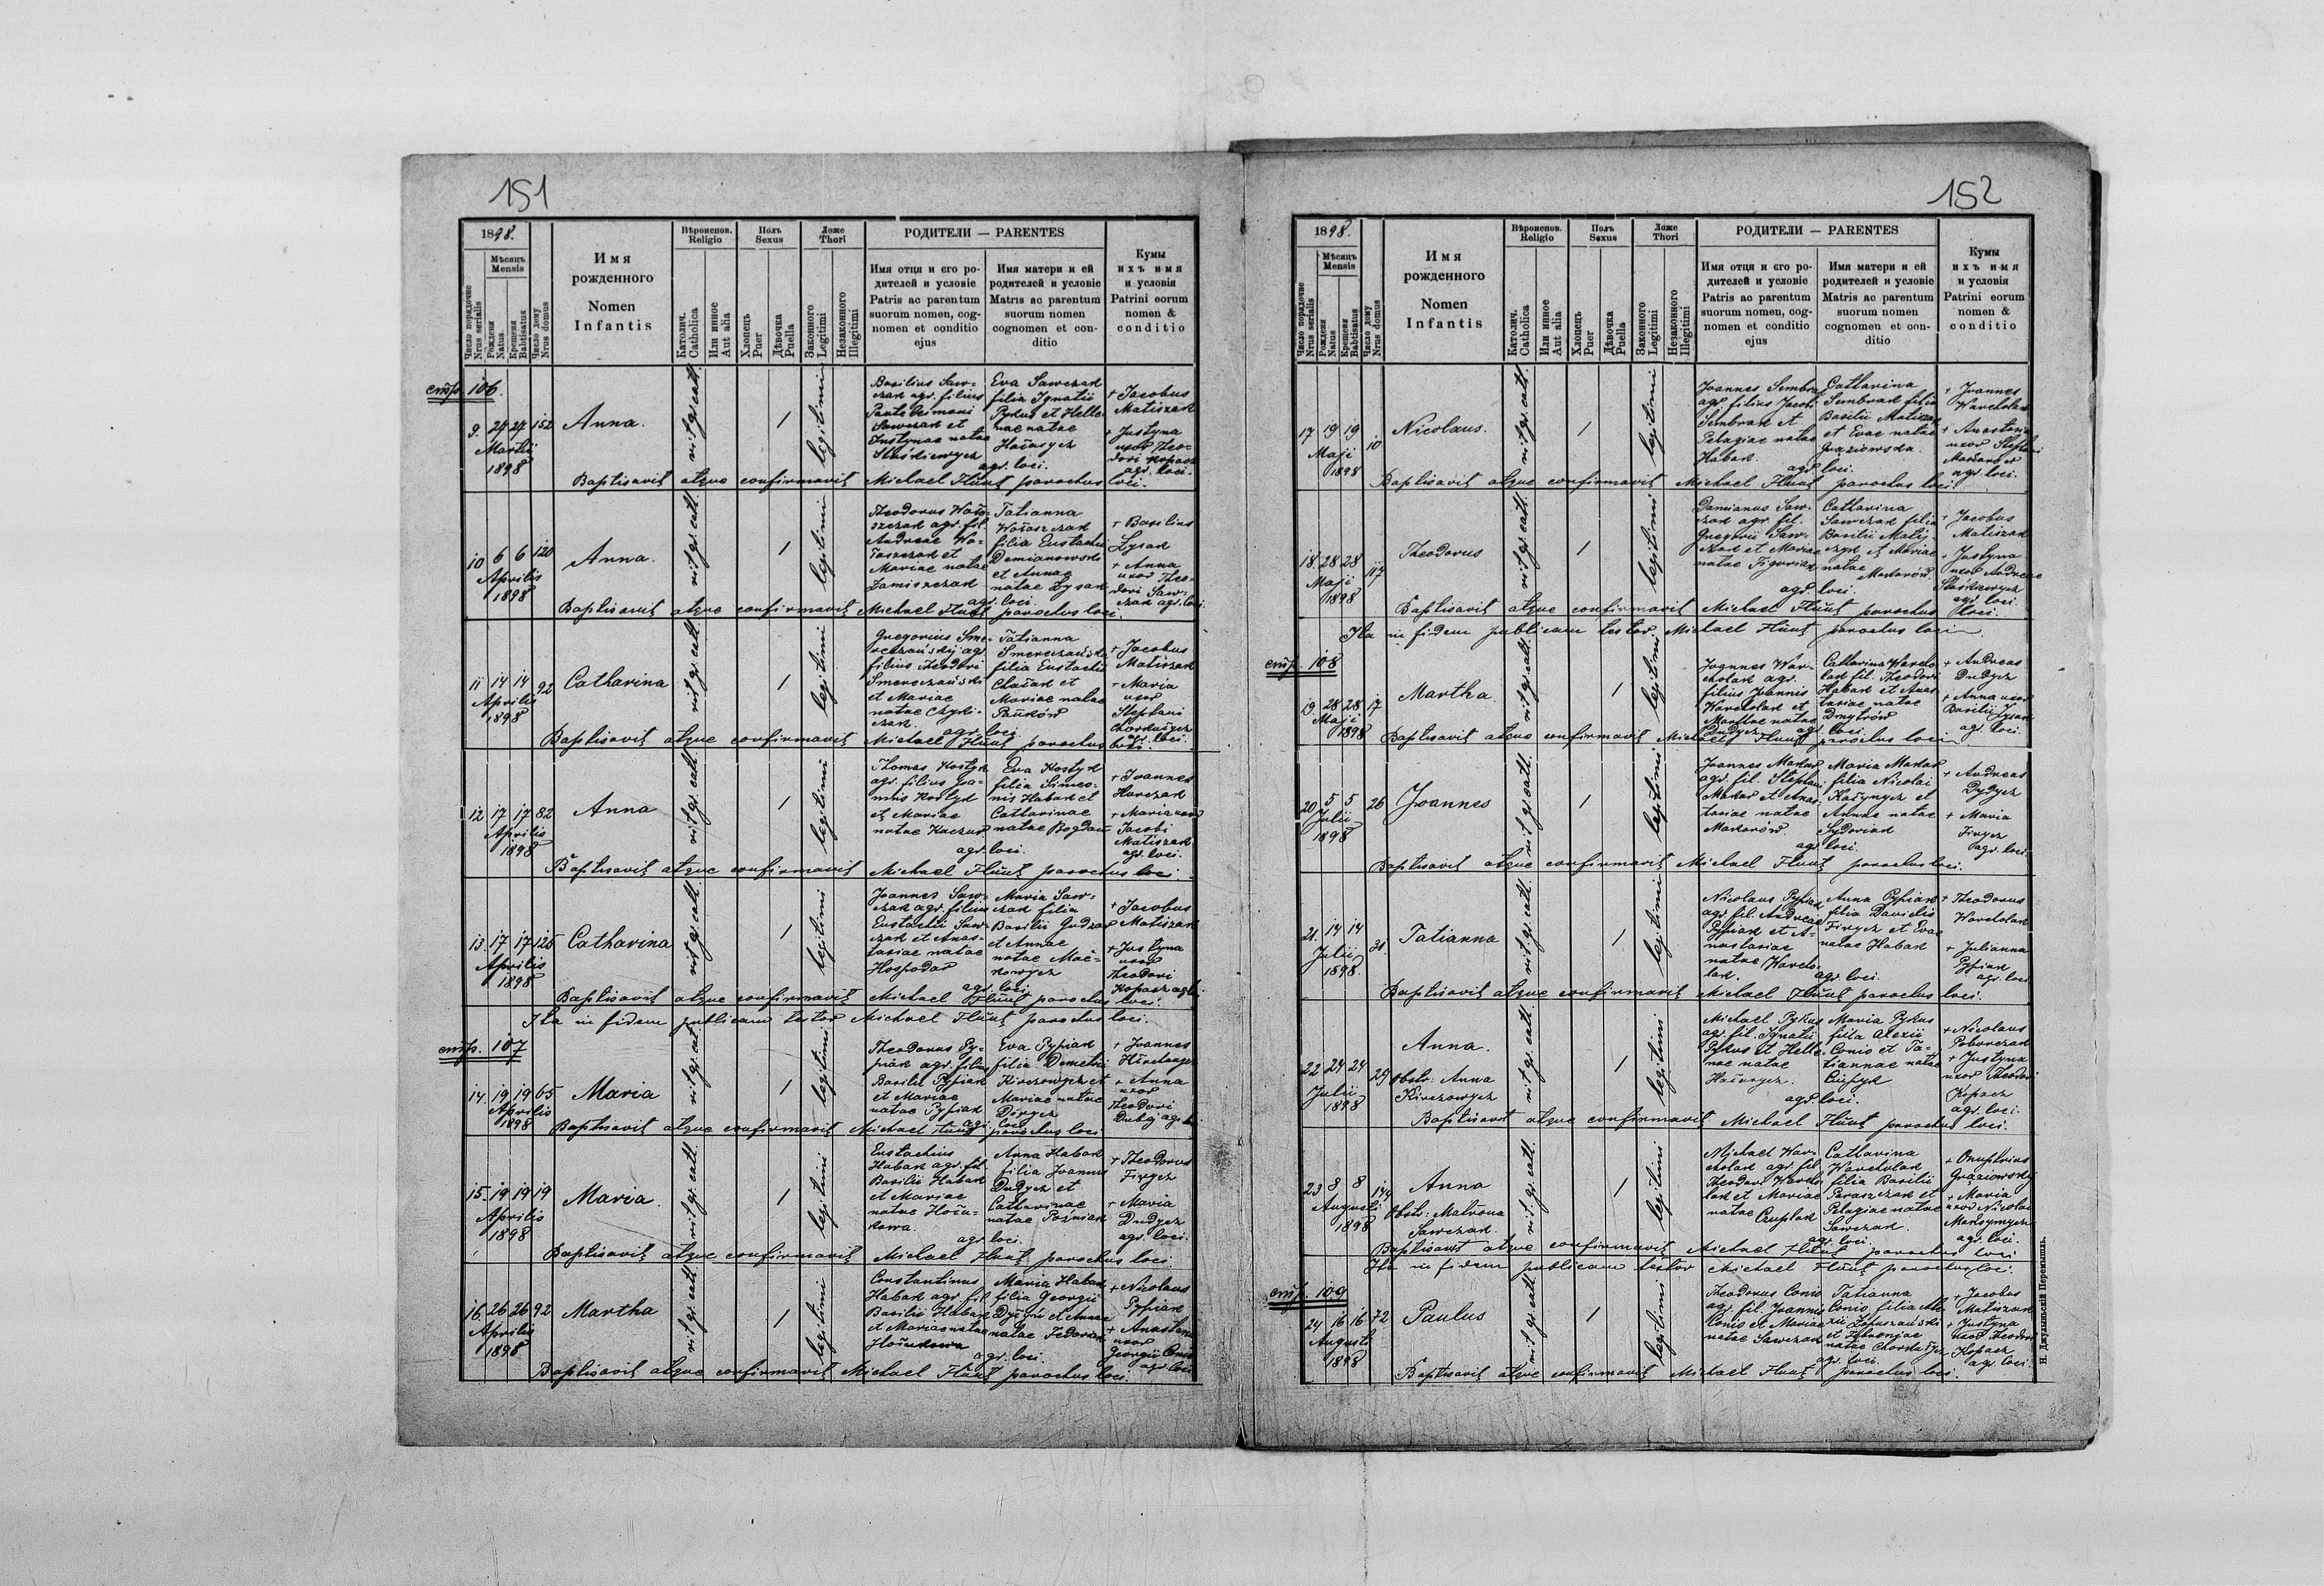 151
1898.
Число порядочне
Nrus serialis
Мѣсяць
Mensis
Рожденя
Natus.
Крещеня
Babtisatus
Число дому
Nrus domus
Имя
рожденного
Nomen
Infantis
Вѣроиспов.
Religio
Католич.
Catholica
Или инное
Aut alia
Полъ
Sexus
Хлопець
Puer
Дѣвочка
Puella
Ложе
Thori
Законного
Legitimi
Незаконного
Illegitimi
РОДИТЕЛИ — PARENTES
Имя отця и єго ро-
дителей и условіе
Patris ac parentum
suorum nomen, cog-
nomen et conditio
ejus
Имя матери и ей
родителей и условіе
Matris ac parentum
suorum nomen
cognomen et con-
ditio
Кумы
ихъ имя
и условія
Patrini eorum
nomen &
conditio
стр. 106.
9. 27 27 152
Martii
1898
Anna.
rit. gr. cath.
1
legitimi
Basilius Saw-
czak agr. filius
Panteleimoni
Sawczak et
Justynae natae
Staśkiewycz
Eva Sawczak
filia Ignatii
Pykus et Hele-
nae natae
agr. loci.
+ Jacobus
Matiszak
+ Justyna
uxor Theo-
dori Kopacz
agr. loci.
Baptisavit atque confirmavit Michael Flunt parochus loci.
10 6 6 120
Aprilis
1898
Anna.
rit. gr. cath.
1
legitimi
Theodorus
agr. fil.
Andreae
et
Mariae natae
Jamiszczak
Tatianna
filia Eustachii
Demianowski
et Annae
natae Łysak
agr. loci.
+ Basilius
Łysak
+ Anna
uxor Theo-
dori Saw-
czak agr. loci.
Baptisavit atque confirmavit Michael Flunt parochus loci.
11 14 14 92
Aprilis
1898
Catharina
rit. gr. cath.
1
legitimi
Gregorius Sme-
reczański agr.
filius Theodori
Smereczański
et Mariae
natae
Tatianna
Smereczańska
filia Eustachii
et
Mariae natae
Pańków
agr. loci.
+ Jacobus
Matiszak
+ Maria
uxor
Stephani
agr. loci.
Baptisavit atque confirmavit Michael Flunt parochus loci.
12 17 17 82
Aprilis
1898
Anna
rit. gr. cath.
1
legitimi
Thomas Kostyk
agr. filius Joa-
nnis Kostyk
et Mariae
natae Kaczur
Eva Kostyk
filia Simeo-
nis Habak et
Catharinae
natae Bogdan
agr. loci.
+ Joannes
Harczak
+ Maria uxor
Jacobi
Matiszak
agr. loci.
Baptisavit atque confirmavit Michael Flunt parochus loci.
13. 17 17 125
Aprilis
1898
Catharina
rit. gr. cath.
1
legitimi
Joannes Saw-
czak agr. filius
Eustachii Saw-
czak et Anas-
tasiae natae
Hospodar
Maria Saw-
czak filia
Basilii Gudzar
et Annae
natae
agr. loci
+ Jacobus
Matiszak
+ Justyna
uxor
Theodori
Kopacz agr. loci
Baptisavit atque confirmavit Michael Flunt parochus loci.
Ita in fidem publicam testor Michael Flunt parochus loci.
стр. 107
14. 19 19 65
Aprilis
1898
Maria
rit. gr. cath.
1
legitimi
Theodorus Py-
piak agr. filius
Basilii Pypiak
et Mariae
natae Pypiak
Eva Pypiak
filia Demetrii
Kirczowycz et
Mariae natae
agr. loci
+ Joannes
+ Anna
uxor
Theodori
Baptisavit atque confirmavit Michael Flunt parochus loci
15. 19 19 19
Aprilis
1898
Maria
rit. gr. cath.
1
legitimi
Eustachius
Habak agr. fil.
Basilii Habak
et Mariae
natae
Anna Habak
filia Joannis
Dudycz et
Catharinae
natae Poźniak
agr. loci.
+ Theodorus
Firycz
+ Maria
Dudycz
agr. loci.
Baptisavit atque confirmavit Michael Flunt parochus loci
16. 26 26 92
Aprilis
1898
Martha
rit. gr. cath.
1
legitimi
Constantinus
Habak agr. fil.
Basilii Habak
et Mariae natae
Maria Habak
filia Georgii
et Annae
natae Fedoriak
agr. loci.
+ Nicolaus
Pypiak
+ Anastasia
uxor
Georgii Conio
agr. loci
Baptisavit atque confirmavit Michael Flunt parochus loci.
152
1898.
Число порядочне
Nrus serialis
Мѣсяць
Mensis
Рожденя
Natus
Крещеня
Babtisatus
Число дому
Nrus domus
Имя
рожденного
Nomen
Infantis
Вѣроиспов.
Religio
Католич.
Catholica
Или инное
Aut alia
Полъ
Sexus
Хлопець
Puer
Дѣвочка
Puella
Ложе
Thori
Законного
Legitimi
Незаконного
Illegitimi
РОДИТЕЛИ — PARENTES
Имя отця и єго ро-
дителей и условіе
Patris ac parentum
suorum nomen, cog-
nomen et conditio
ejus
Имя матери и ей
родителей и условіе
Matris ac parentum
suorum nomen
cognomen et con-
ditio
Кумы
ихъ имя
и условія
Patrini eorum
nomen &
conditio
17 19 19 10
Maji
1898
Nicolaus.
rit. gr. cath.
1
legitimi
Joannes Sembrak
agr. filius Jacobi
Sembrak et
Pelagiae natae
Habak.
Catharina
Sembrak filia
Basilii Matiszak
et Evae natae
Graziowska.
agr. loci.
+ Joannes
Warcholak
+ Anastasia
uxor Stephani
agr. loci.
Baptisavit atque confirmavit Michael Flunt parochus loci.
18. 28 28 117
Maji
1898
Theodorus
rit. gr. cath.
1
legitimi
Damianus Saw-
czak agr. fil.
Gregorii Saw-
czak et Mariae
natae
Catharina
Sawczak filia
Basilii
et Mariae
natae Makarów
agr. loci.
+ Jacobus
Matiszak
+ Justyna
uxor Andreae
Staśkiewycz
agr. loci
Baptisavit atque confirmavit Michael Flunt parochus loci.
Ita in fidem publicam testor Michael Flunt parochus loci
стр. 108
19. 28 28 17
Maji
1898
Martha
rit. gr. cath.
1
legitimi
Joannes War-
cholak agr.
filius Joannis
Warcholak et
Marthae natae
Dudycz
Catharina Warcho-
lak fil. Theodori
Habak et Anas-
tasiae natae
Dmytrów
agr. loci.
+ Andreas
Dudycz
+ Anna uxor
Basilii Łysak
agr. loci.
Baptisavit atque confirmavit Michael Flunt parochus loci
20 5 5 26
Julii
1898
Joannes
rit. gr. cath.
1
legitimi
Joannes Makar
agr. fil. Stephani
Makar et Anas-
tasiae natae
Makarów.
Maria Makar
filia Nicolai
et
Annae natae
Sydoriak
agr. loci.
+ Andreas
Dydycz
+ Maria
Firycz
agr. loci.
Baptisavit atque confirmavit Michael Flunt parochus loci.
21. 14 14 31.
Julii
1898.
Tatianna
rit. gr. cath.
1
legitimi
Nicolaus Pypiak
agr. fil. Andreae
Pypiak et A-
nastasiae
natae Warcho-
lak.
Anna Pypiak
filia Davidis
Firycz et Evae
natae Habak
agr. loci.
+ Theodorus
Warcholak
+ Julianna
Pypiak
agr. loci
Baptisavit atque confirmavit Michael Flunt parochus loci.
22 24 24 29
Julii
1898
Anna.
Obstr. Anna
Kirczowycz
rit. gr. cath.
1
legitimi
Michael Pykus
agr. fil. Ignatii
Pykus et Hele-
nae natae
Maria Pykus
filia Alexii
Conio et Ta-
tiannae natae
agr. loci.
+ Nicolaus
Poburczak
+ Justyna
uxor Theodori
Kopacz
agr. loci.
Baptisavit atque confirmavit Michael Flunt parochus loci.
23 8 8 144
Augusti
1898
Anna
Obstr. Matrona
Sawczak.
rit. gr. cath.
1
legitimi
Michael War-
cholak agr. fil.
Theodori Warcho-
lak et Mariae
natae Czuplak
Catharina
Warcholak
filia Basilii
Paraszczak et
Pelagiae natae
Sawczak.
agr. loci.
+ Onuphrius
Graziowski
+ Maria
uxor Nicolai
Maksymycz
agr. loci.
Baptisavit atque confirmavit Michael Flunt parochus loci
Ita in fidem publicam testor Michael Flunt parochus loci.
стр. 109
24 16 16 72
Augusti
1898
Paulus
rit. gr. cath.
1
legitimi
Theodorus Conio
agr. fil. Joannis
Conio et Mariae
natae Sawczak
Tatianna
Conio filia Ale-
xii Łopuszański
et
natae
agr. loci.
+ Jacobus
Matiszak
+ Justyna
uxor Theodori
Kopacz
agr. loci
Baptisavit atque confirmavit Michael Flunt parochus loci.
Н. Джулыньскій Перемышль.